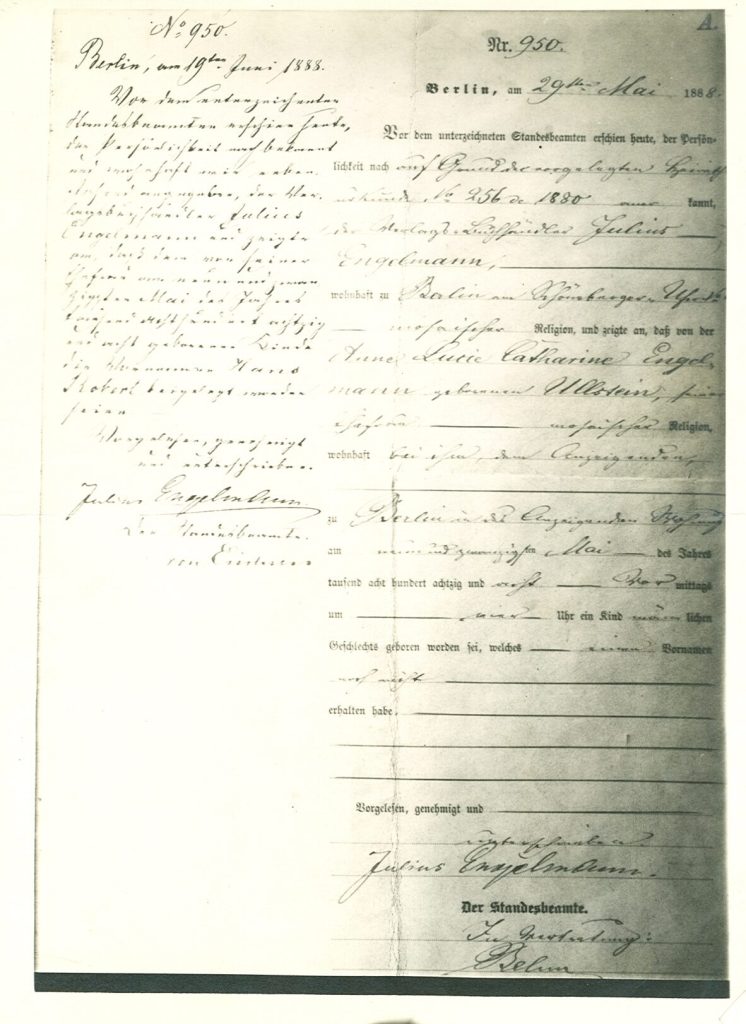 A.
No. 950.
Berlin, am 19ten Juni 1888.
Vor dem unterzeichneten
Standesbeamten erschien heute,
der Persönlichkeit nach bekannt
und wohnhaft wie neben-
stehend angegeben, der Ver-
lagsbuchhändler Julius
Engelmann und zeigte
an, daß dem von seiner
Ehefrau am neun und zwan-
zigsten Mai des Jahres
tausend achthundert achtzig
und acht geborenen Kinde
die Vornamen Hans
Robert beigelegt worden
seien
Vorgelesen, genehmigt
und unterschrieben.
Julius Engelmann
Der Standesbeamte.
Nr. 950.
Berlin, am 29ten Mai 1888.
Vor dem unterzeichneten Standesbeamten erschien heute, der Persön-
lichkeit nach auf Grund der vorgelegten Heirats-
urkunde No 256 de 1880 aner kannt,
der Verlags-Buchhändler Julius
Engelmann,
wohnhaft zu Berlin am Schöneberger Ufer
mosaischer Religion, und zeigte an, daß von der
Anna Lucie Catharine Engel-
mann geborenen Ullstein, seiner
Ehefrau mosaischer Religion,
wohnhaft bei ihm, dem Anzeigenden,
zu Berlin in des Anzeigenden Wohnung
am neun und zwanzigsten Mai des Jahres
tausend acht hundert achtzig und acht Vor mittags
um vier Uhr ein Kind männ lichen
Geschlechts geboren worden sei, welches einen Vornamen
noch nicht
erhalten habe.
Vorgelesen, genehmigt und
unterschrieben
Julius Engelmann.
Der Standesbeamte.
In Vertretung: